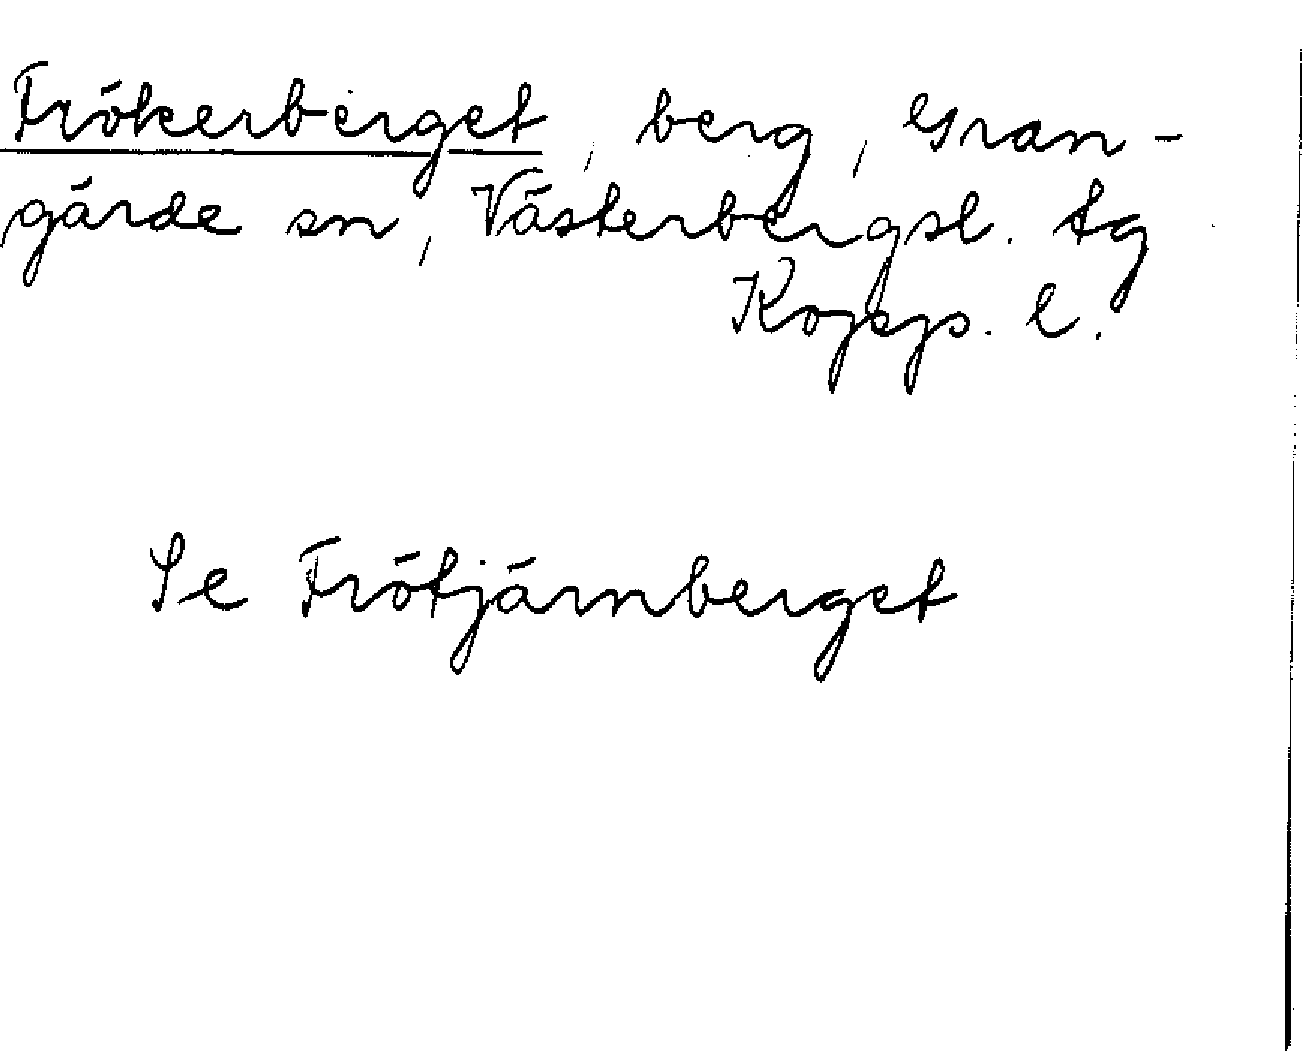 Frökerberget, berg, Gran-
gärde sn, Västerbergsl. tg
Kopps. l.
Se Frötjärnberget